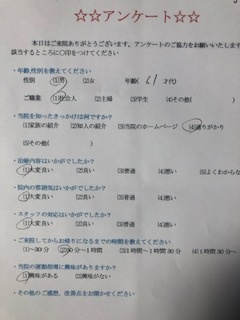 ☆☆アンケート☆☆
本日はご来院ありがとうございます。アンケートのご協力をお願いいたします
該当するところに○印をつけてください
・年齢,性別を教えてください
性別 (1)男 (2)女 年齢( 61 才代)
ご職業 (1)社会人 (2)主婦 (3)学生 (4)その他(
・当院を知ったきっかけは何ですか?
(1)家族の紹介 (2)知人の紹介 (3)当院のホームページ (4)通りがかり
(5)その他( )
・治療内容はいかがでしたか?
(1)大変良い (2)良い (3)普通 (4)悪い (5)よくわから
・院内の雰囲気はいかがでしたか?
(1)大変良い (2)良い (3)普通 (4)悪い
・スタッフの対応はいかがでしたか?
(1)大変良い (2)良い (3)普通 (4)悪い
・ご来院してからお帰りになるまでの時間を教えてください
(1)~30分 (2)30分~1時間 (3)1時間~1時間30分 (4)1時間30分~
・当院の運動指導に興味がありますか?
(1)興味がある (2)興味がない
・その他のご感想、改善点をお聞かせください